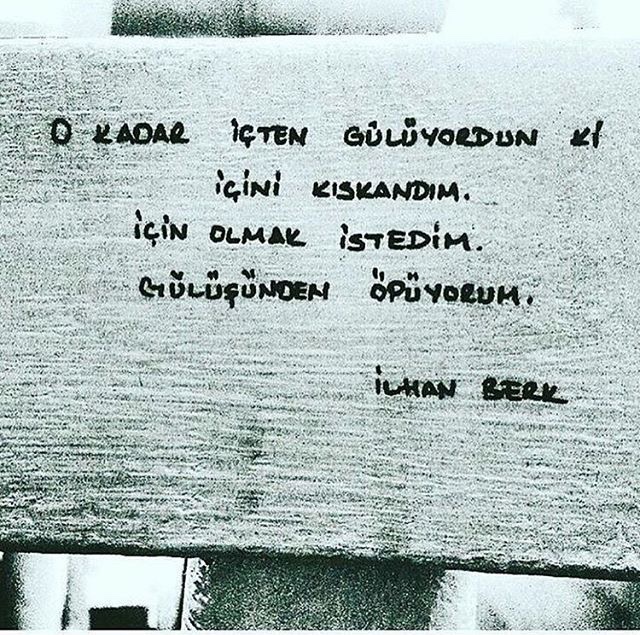 O KADAR İÇTEN GÜLÜYORDUN Kİ
İÇİNİ KISKANDIM.
İÇİN OLMAK İSTEDİM.
GÜLÜŞÜNDEN ÖPÜYORUM.
İLHAN BERK